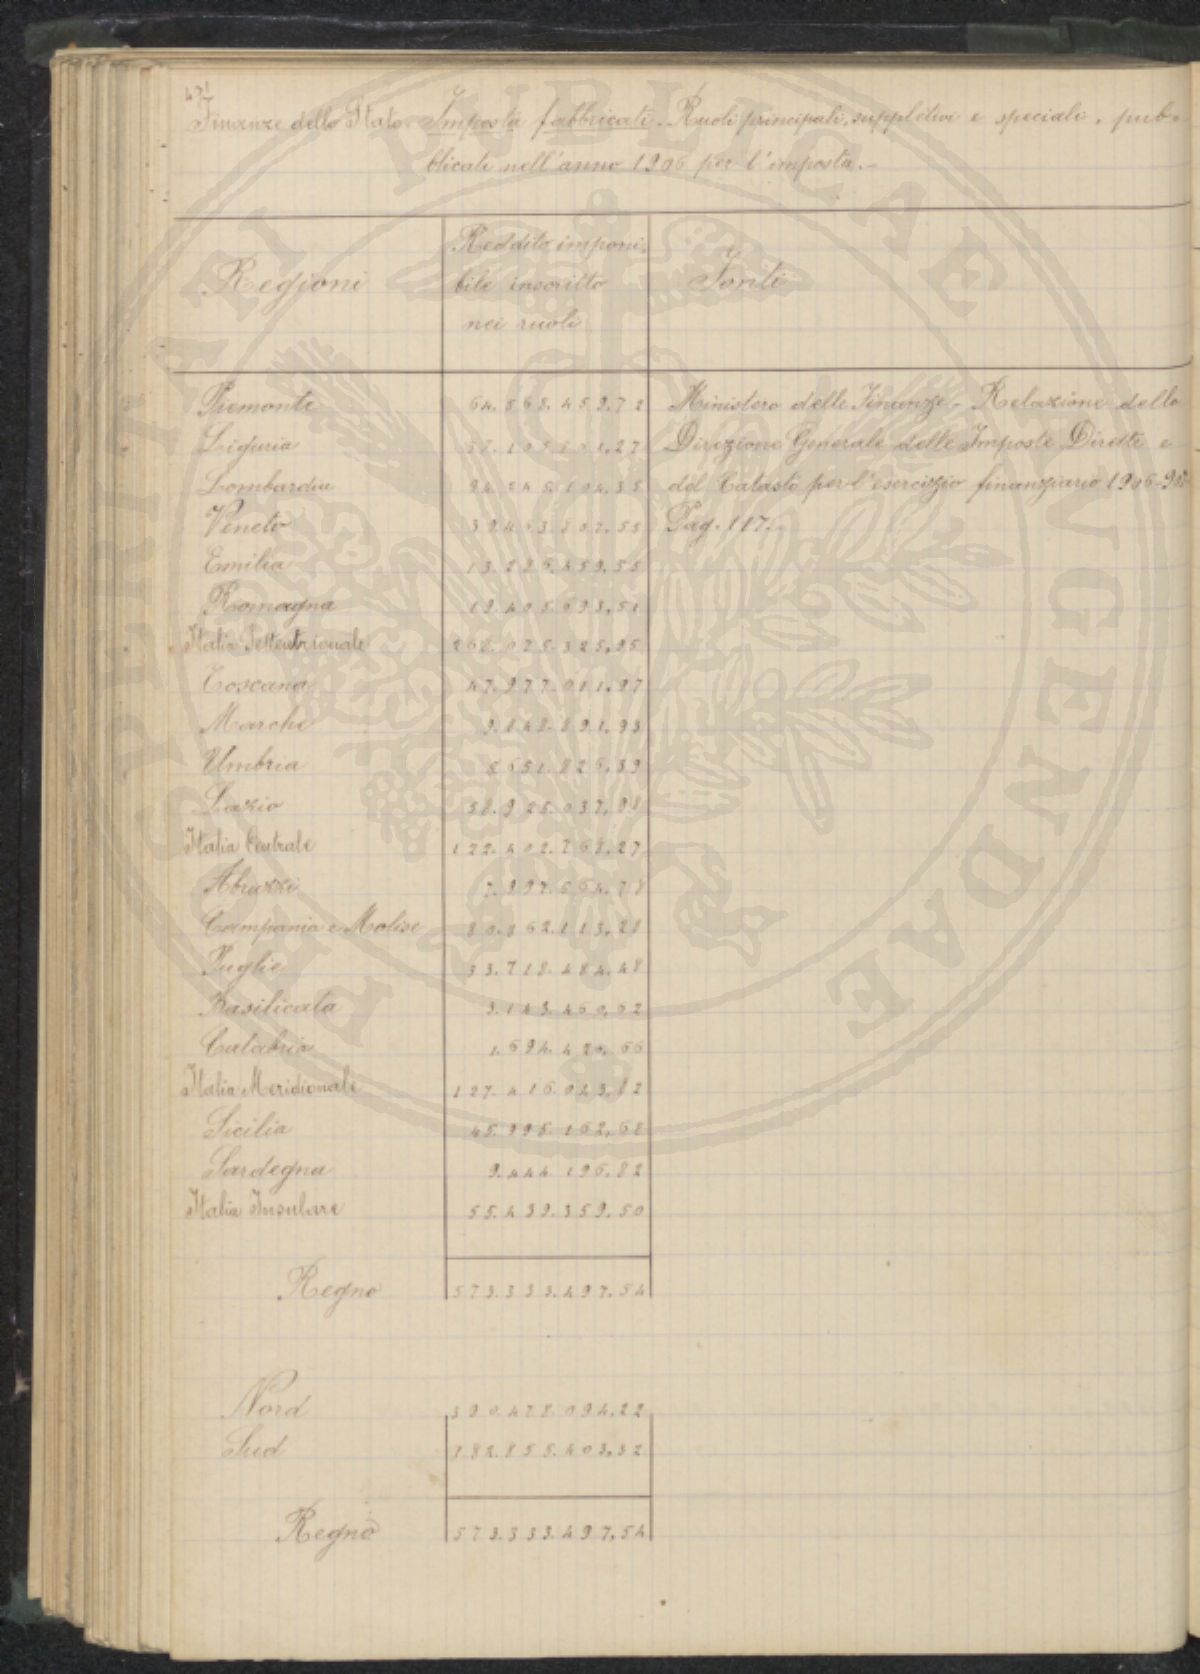 431
Finanze dello Stato. Imposta fabbricati. Ruoli principali, suppletivi e speciali, pub-
blicati nell'anno 1906 per l'imposta.-
Regioni
Reddito imponi-
bile inscritto
nei ruoli
Fonti
Piemonte 64.568.459,72 Ministero delle Finanze - Relazione della
Liguria 37.165.801,27 Direzione Generale delle Imposte Dirette e
Lombardia 94.245.104,35 del Catasto per l'esercizio finanziario 1906-907
Veneto 39.463.807,55 Pag. 117.
Emilia 13.226.459,55
Romagna 19.405.693,51
Italia Settentrionale 268.075.325,95
Toscana 47.977.011,97
Marche 9.848.891,93
Umbria 5.651.826,39
Lazio 58.925.037,98
Italia Centrale 122.402.768,27
Abruzzi 7.997.564,78
Campania e Molise 80.862.113,28
Puglie 33.718.484,48
Basilicata 3.143.460,62
Calabria 1.694.420,66
Italia Meridionale 127.416.043,82
Sicilia 45.995.162,68
Sardegna 9.444.196,82
Italia Insulare 55.439.359,50
Regno 573.333.497,54
Nord 390.478.094,22
Sud 182.855.403,32
Regno 573.333.497,54